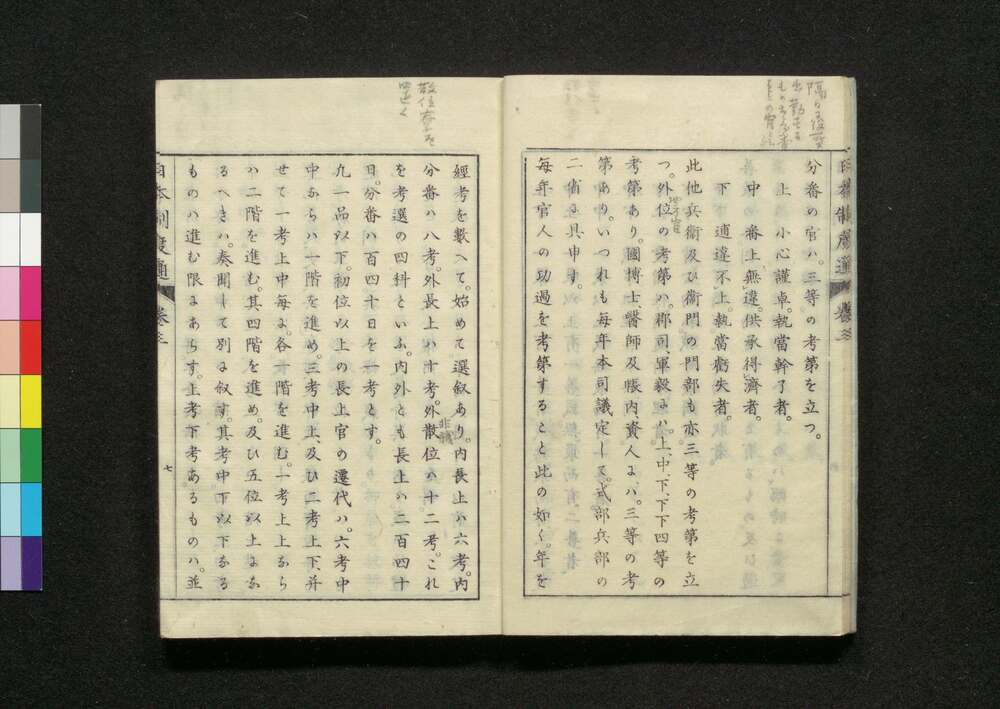 分番の官ハ。三等の考第を立つ。
上　小心謹卓。執當幹了者。
中　番上無違。供承得濟者。
下　逋違不上。執當虧失者。
此他兵衛及び衛門の門部も亦三等の考第を立
つ。外位の考第ハ。郡司、軍毅にハ。上、中、下、下下四等の
考第あり。國博士、醫師及帳内、資人にハ。三等の考
第あり。いつれも毎年本司議定し。又。式部兵部の
二省に具申す。
毎年官人の功過を考第すること此の如く。年を
經考を數へて。始めて選叙あり。内長上ハ六考。内
分番ハ八考。外長上ハ十考。外散位ハ十二考。これ
を考選の四科といふ。内外とも長上ハ二百四十
日。分番ハ百四十日を一考とす。
九一品以下。初位以上の長上官の遷代ハ。六考中
中ならハ一階を進め。三考中上、及ひ二考上下、并
せて一考上中毎に。各一階を進む。一考上上なら
ハ二階を進む。其四階を進め。及ひ五位以上にな
るへきハ。奏聞して別に叙す。其考中下以下なる
ものハ進む限にあらす。上考下考あるものハ。並
日本制度通
卷三
七